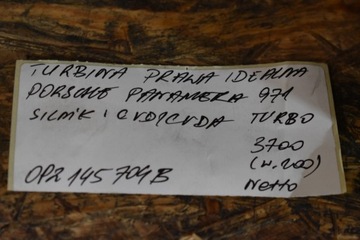 TURBINA PRAWA IDEALNA
PORSCHE PANAMERA 971
SILNIK I CUDICUDA TURBO
3700
(W.200)
OP2 145 704B Netto